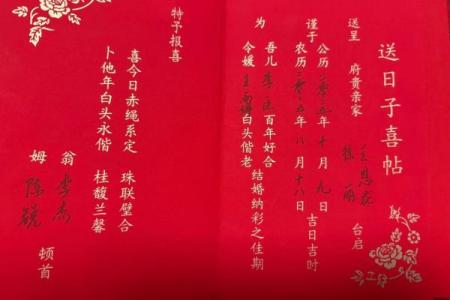 送日子喜帖
送呈
府贵亲家
王恩花
徐丽
台启
谨于
公历二〇二五年十月九日
农历二〇二五年八月十八日
吉日吉时
为
吾儿李 百年好合
令媛王 白头偕老
结婚纳彩之佳期
特予报喜
喜今日赤绳系定 珠联璧合
卜他年白头永偕 桂馥兰馨
翁 李杰
姆 陈
顿首